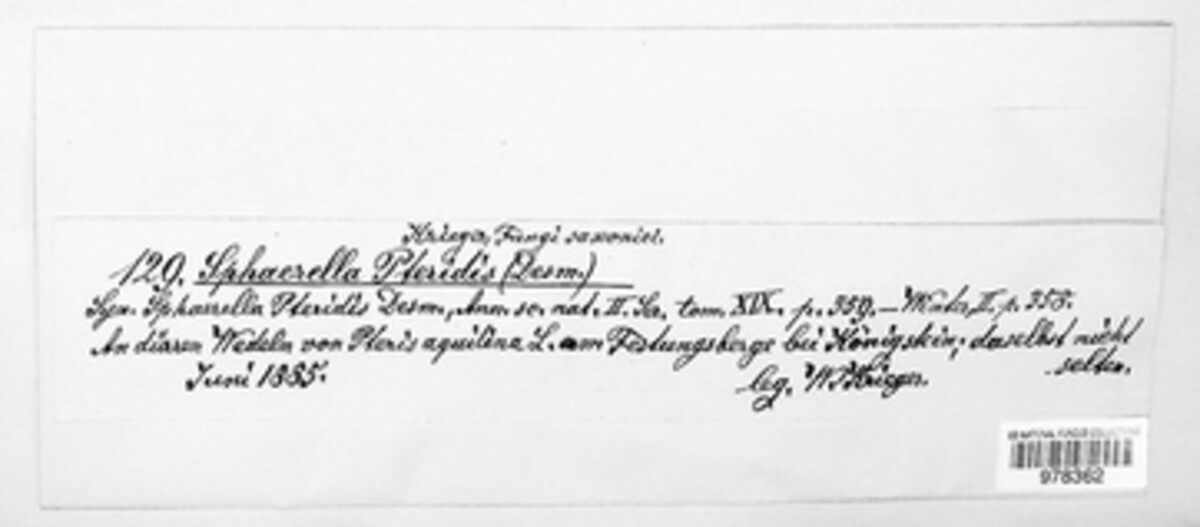 Krieger, Fungi saxonici.
129. Sphaerella Pteridis (Desm.)
Syn. Sphaerella Pteridis Desm., Ann. sc. nat. III. Se. tom. XIX. p. 359. — Winter, II. p. 358.
An dürren Wedeln von Pteris aquilina L. am Festungsberge bei Königstein; daselbst nicht
selten.
Juni 1885. leg. W. Krieger.
978362